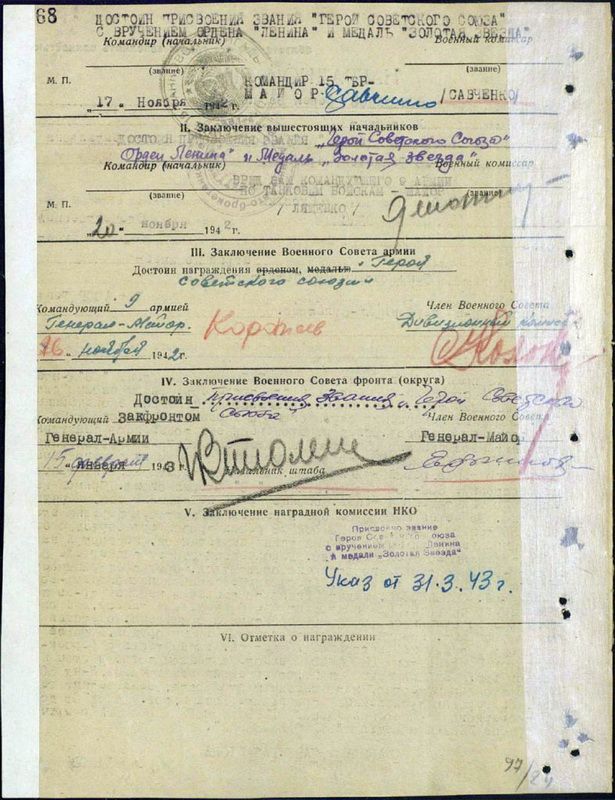 68
ДОСТОИН ПРИСВОЕНИЯ ЗВАНИЯ "ГЕРОЙ СОВЕТСКОГО СОЮЗА"
С ВРУЧЕНИЕМ ОРДЕНА "ЛЕНИНА" И МЕДАЛЬ "ЗОЛОТАЯ ЗВЕЗДА"
Командир (начальник) Военный комиссар
(звание) (звание)
КОМАНДИР 15 ТБР-
М. П. МАЙОР Савченко /САВЧЕНКО/
"17" Ноября 1942
II. Заключение вышестоящих начальников
"Герой Советского Союза"
Орден Ленина" и Медаль "Золотая звезда"
Командир (начальник) Военный комиссар
ВРИД ЗАМ КОМАНДУЮЩЕГО 9 АРМИИ
(звание) ПО ТАНКОВЫМ ВОЙСКАМ - (звание)
М. П.
"20" ноября 1942 г.
III. Заключение Военного Совета армии
Достоин награждения орденом, медалью "Герой
Советского союза"
Командующий 9 армией Член Военного Совета
Генерал-Майор Коротеев Дивизионный
"26" ноября 1942 г.
IV. Заключение Военного Совета фронта (округа)
Достоин присвоения звания "Герой Советского
Союза"
Командующий Закфронтом Член Военного Совета
Генерал-Армии Генерал-Майор
15 февраля января 1943
Начальник штаба
V. Заключение наградной комиссии НКО
Присвоено звание
Героя Союза
с вручением Ленина
и медали „Золотая Звезда"
Указ от 31.3.43 г.
VI. Отметка о награждении
97/